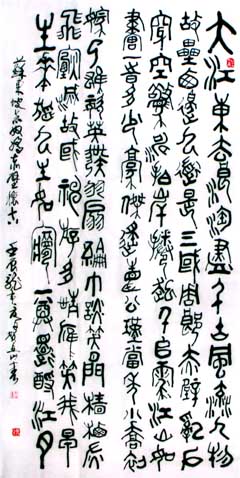 大江東去浪淘盡千古風流人物
故壘西邊人道是三國周郎赤壁亂石
穿空驚濤拍岸捲起千堆雪江山如
畫一時多少豪傑遙想公瑾當年小喬初
嫁了雄姿英發羽扇綸巾談笑間檣櫓灰
飛煙滅故國神遊多情應笑我早
生華髮人生如夢一尊還酹江月
蘇東坡念奴嬌赤壁懷古
壬辰